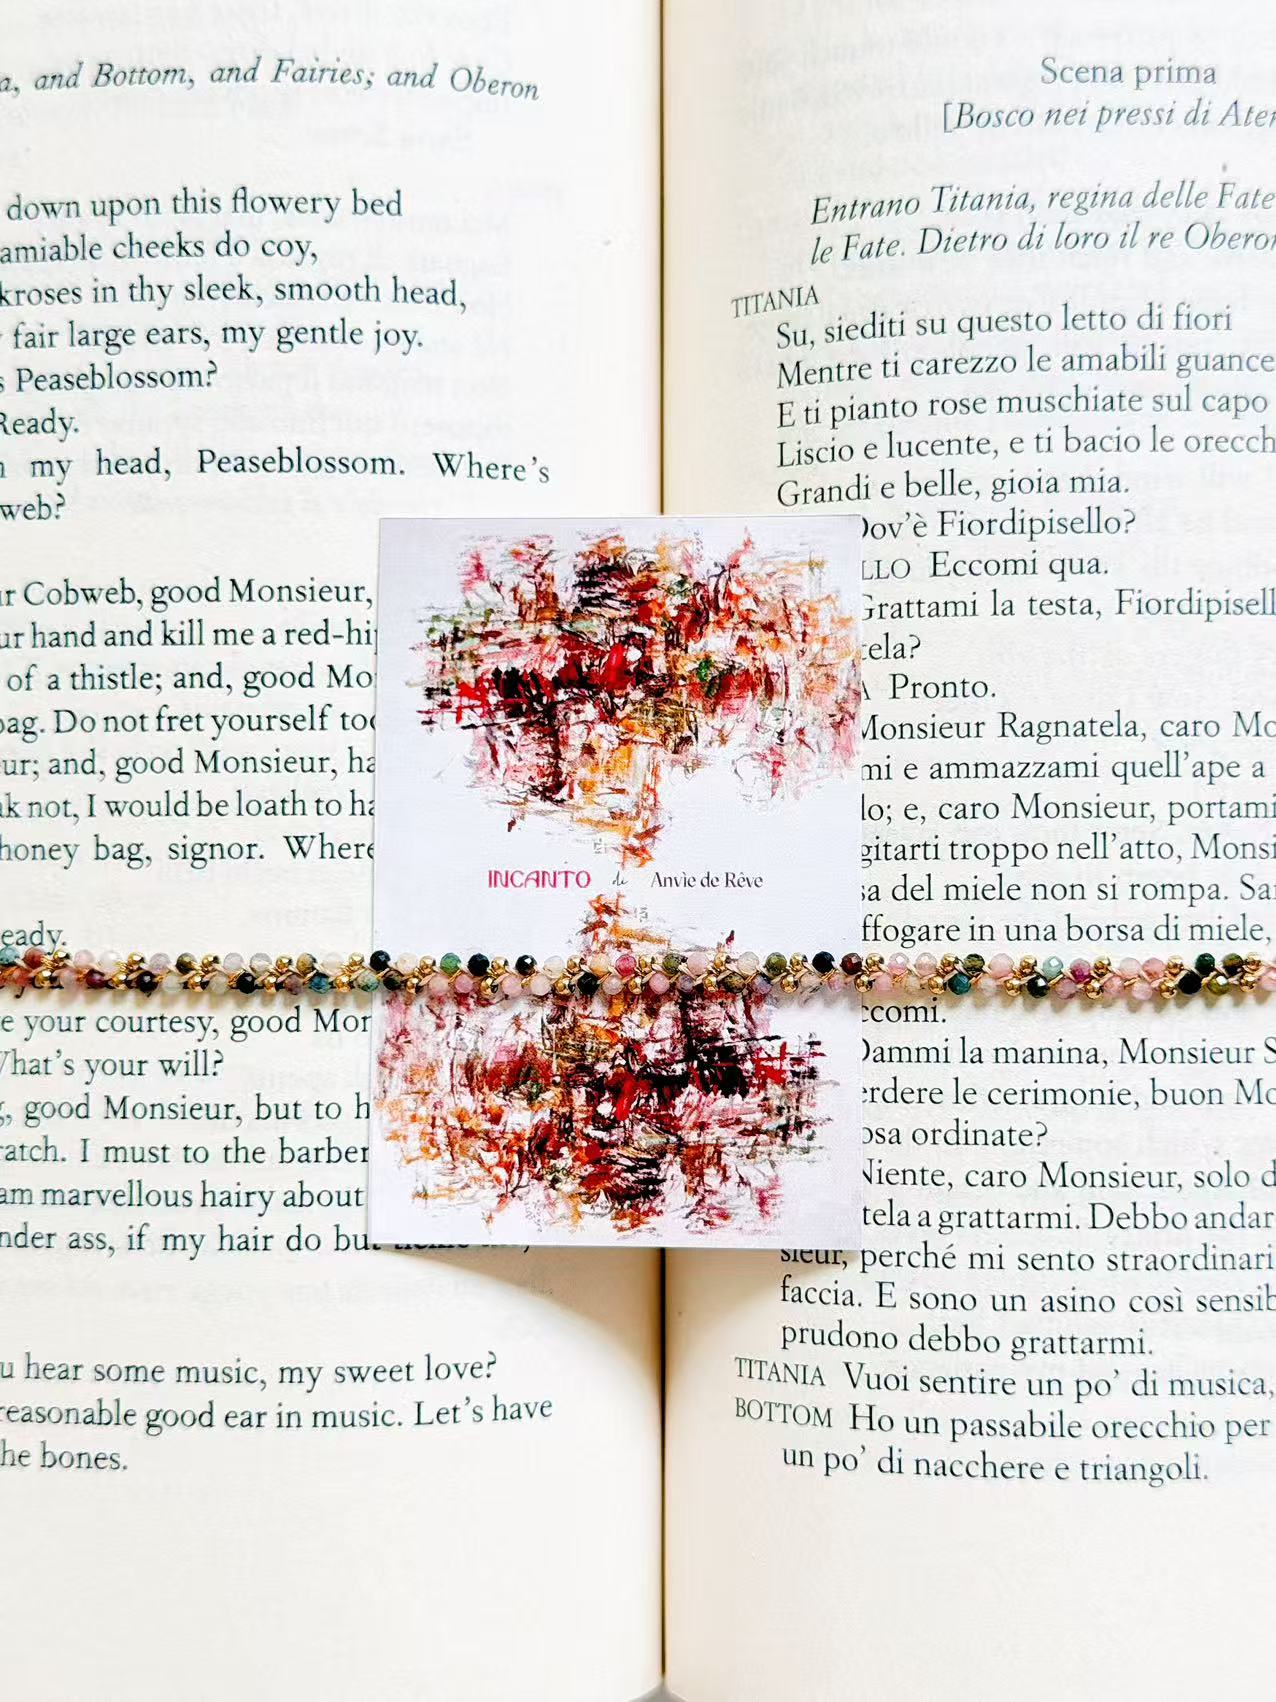 and Bottom, and Fairies; and Oberon
down upon this flowery bed
amiable cheeks do coy,
in thy sleek, smooth head,
fair large ears, my gentle joy.
Peaseblossom?
Ready.
my head, Peaseblossom. Where's
Cobweb, good Monsieur,
hand and kill me a
of a thistle; and, good
Do not fret yourself
and, good Monsieur,
not, I would be loath to
honey bag, signor.
your courtesy, good
What's your will?
good Monsieur, but to
I must to the
am marvellous hairy about
ass, if my hair do
hear some music, my sweet love?
reasonable good ear in music. Let's have
bones.
Scena prima
[Bosco nei pressi di
Entrano Titania, regina delle Fate
le Fate. Dietro di loro il re
TITANIA
Su, siediti su questo letto di fiori
Mentre ti carezzo le amabili guance
E ti pianto rose muschiate sul capo
Liscio e lucente, e ti bacio le
Grandi e belle, gioia mia.
Dov'è Fiordipisello?
Eccomi qua.
Grattami la testa,
Pronto.
Monsieur Ragnatela, caro
e ammazzami quell'ape a
e, caro Monsieur, portami
troppo nell'atto,
del miele non si rompa.
in una borsa di miele,
INCANTO di Anvìe de Rêve
Dammi la manina, Monsieur
le cerimonie, buon
ordinate?
Niente, caro Monsieur, solo
a grattarmi. Debbo
perché mi sento
faccia. E sono un asino così
prudono debbo grattarmi.
TITANIA Vuoi sentire un po' di musica,
BOTTOM Ho un passabile orecchio per
un po' di nacchere e triangoli.